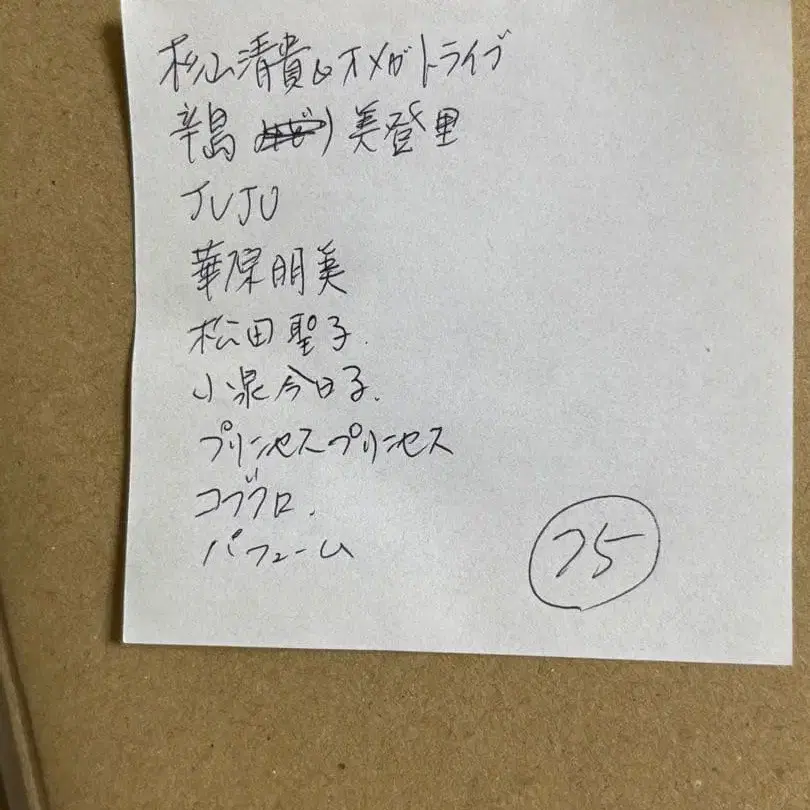 杉山清貴&オメガトライブ
辛島 美登里
JUJU
華原朋美
松田聖子.
小泉今日子.
プリンセスプリンセス
コブクロ.
パフューム
75